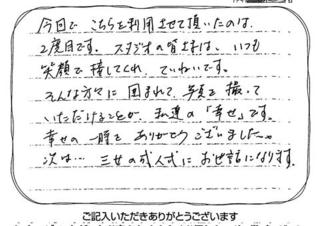 今回で こちらを利用させて頂いたのは、
2度目です。スタジオの皆さまは、いつも
笑顔で接してくれ、ていねいです。
そんな方々に囲まれて、写真を撮って
いただけることが、私達の「幸せ」です。
幸せの一時を ありがとうございました。
次は… 三女の成人式に お世話になります。
ご記入いただきありがとうございます